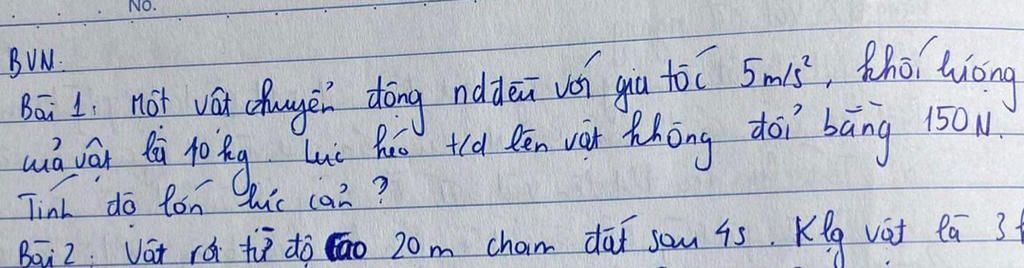 No.
BVN.
Bài 1: Một vật chuyển động ndđều với gia tốc 5m/s², khối lượng
của vật là 10kg. Lực kéo t/d lên vật không đổi bằng 150N.
Tính độ lớn lực cản?
Bài 2: Vật rơi từ độ cao 20m chạm đất sau 4s. Klg vật là 3